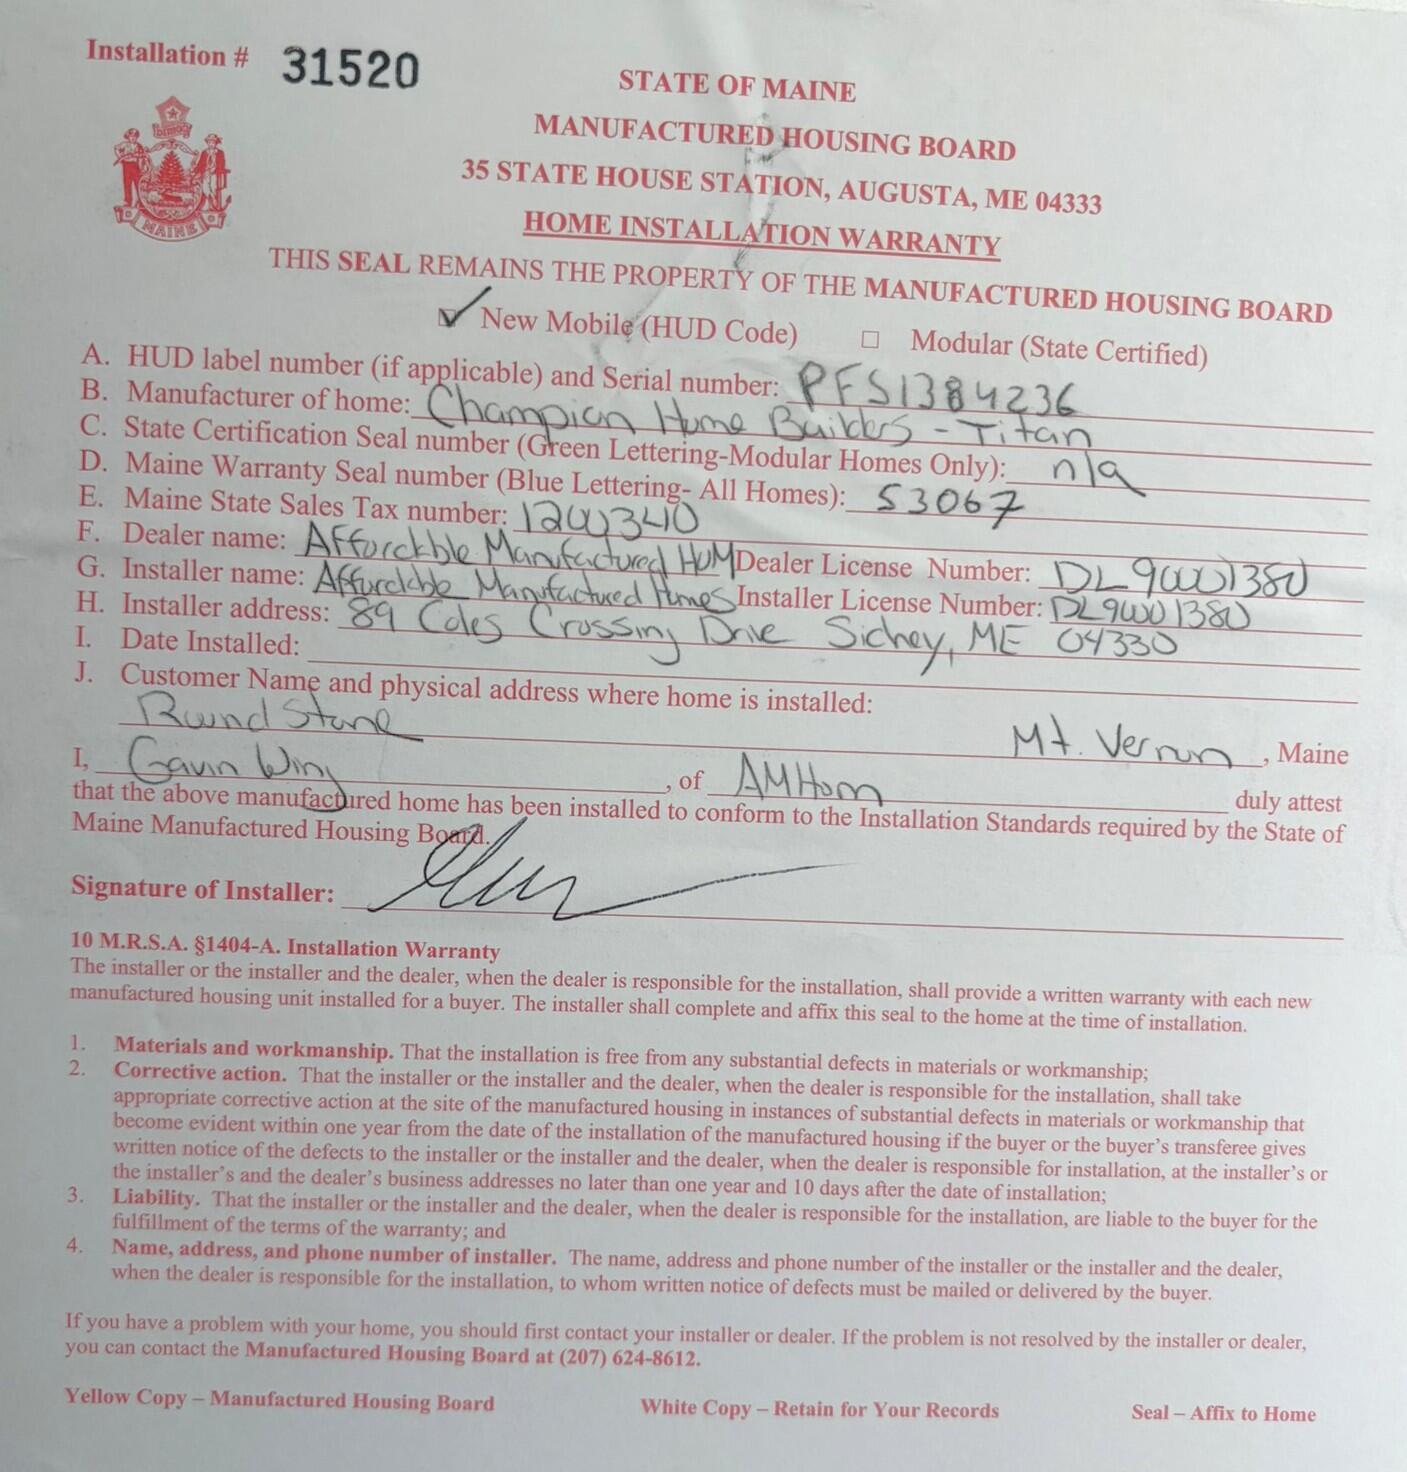 Installation # 31520
STATE OF MAINE
MANUFACTURED HOUSING BOARD
35 STATE HOUSE STATION, AUGUSTA, ME 04333
HOME INSTALLATION WARRANTY
THIS SEAL REMAINS THE PROPERTY OF THE MANUFACTURED HOUSING BOARD
DIRIGO
MAINE
New Mobile (HUD Code) Modular (State Certified)
A. HUD label number (if applicable) and Serial number: PFS1384236
B. Manufacturer of home: Champion Home Builders - Titan
C. State Certification Seal number (Green Lettering-Modular Homes Only): n/a
D. Maine Warranty Seal number (Blue Lettering- All Homes): 53067
E. Maine State Sales Tax number:
F. Dealer name: Affordable Manufactured Dealer License Number: DL90001380
G. Installer name: Affordable Manufactured Homes Installer License Number: DL90001380
H. Installer address: 89 Coles Crossing Drive Sidney, ME 04330
I. Date Installed:
J. Customer Name and physical address where home is installed:
Round Stone Mt. Vernon, Maine
I, Gavin Wing, of AMHom duly attest
that the above manufactured home has been installed to conform to the Installation Standards required by the State of
Maine Manufactured Housing Board.
Signature of Installer:
10 M.R.S.A. §1404-A. Installation Warranty
The installer or the installer and the dealer, when the dealer is responsible for the installation, shall provide a written warranty with each new
manufactured housing unit installed for a buyer. The installer shall complete and affix this seal to the home at the time of installation.
1. Materials and workmanship. That the installation is free from any substantial defects in materials or workmanship;
2. Corrective action. That the installer or the installer and the dealer, when the dealer is responsible for the installation, shall take
appropriate corrective action at the site of the manufactured housing in instances of substantial defects in materials or workmanship that
become evident within one year from the date of the installation of the manufactured housing if the buyer or the buyer's transferee gives
written notice of the defects to the installer or the installer and the dealer, when the dealer is responsible for installation, at the installer's or
the installer's and the dealer's business addresses no later than one year and 10 days after the date of installation;
3. Liability. That the installer or the installer and the dealer, when the dealer is responsible for the installation, are liable to the buyer for the
fulfillment of the terms of the warranty; and
4. Name, address, and phone number of installer. The name, address and phone number of the installer or the installer and the dealer,
when the dealer is responsible for the installation, to whom written notice of defects must be mailed or delivered by the buyer.
If you have a problem with your home, you should first contact your installer or dealer. If the problem is not resolved by the installer or dealer,
you can contact the Manufactured Housing Board at (207) 624-8612.
Yellow Copy – Manufactured Housing Board White Copy – Retain for Your Records Seal – Affix to Home